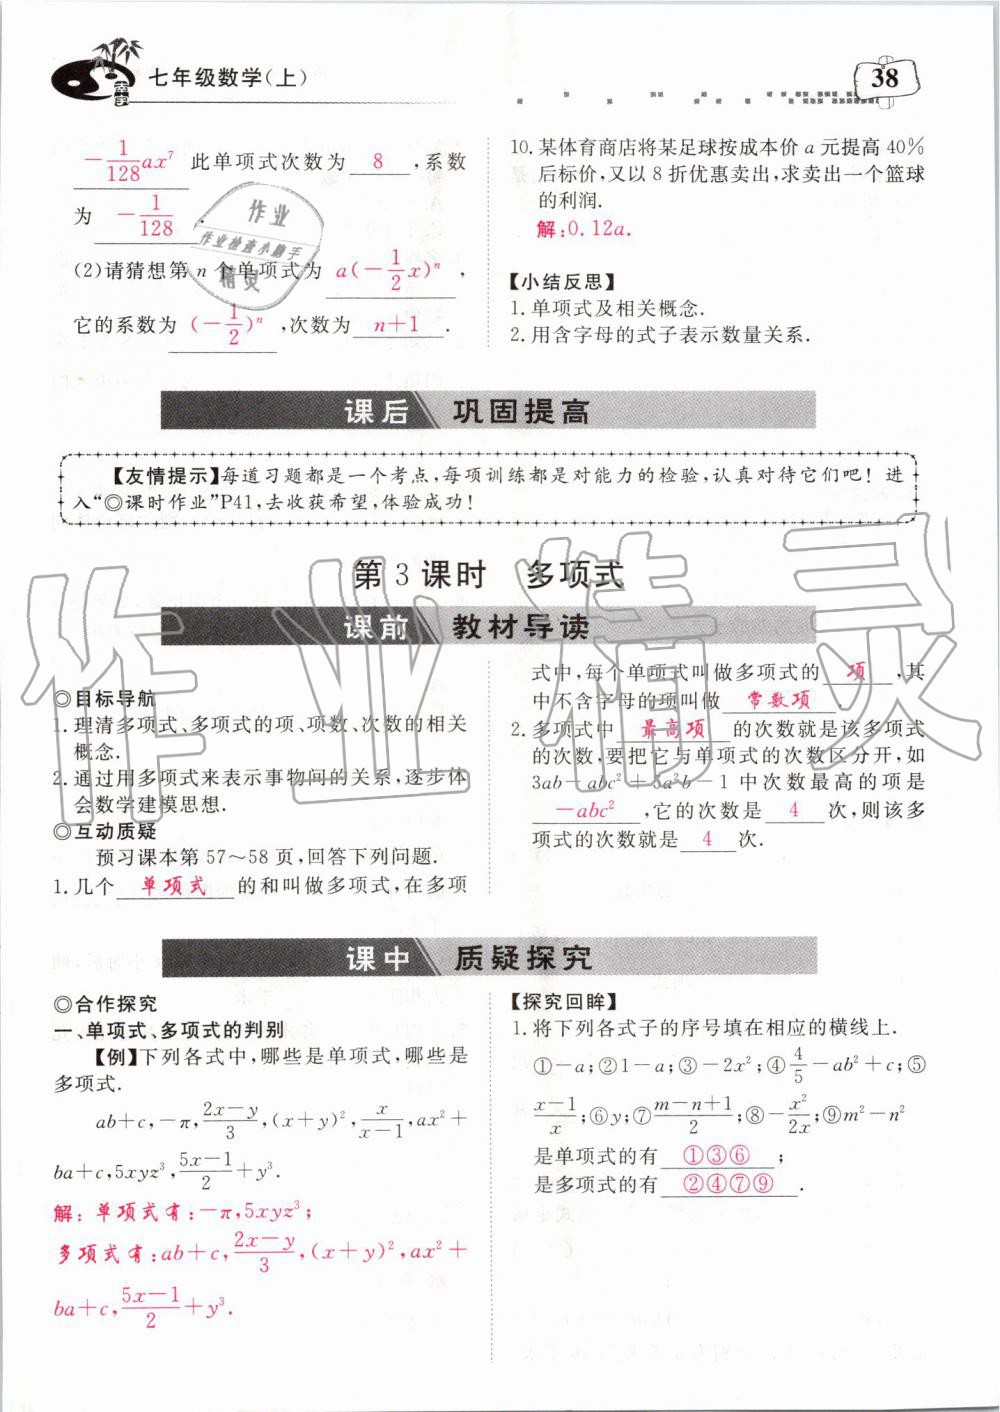 七年级数学(上)
38
-1/128 ax⁷ 此单项式次数为 8 ,系数
为 -1/128 .
(2)请猜想第 n 个单项式为 a(-1/2 x)ⁿ ,
它的系数为 (-1/2)ⁿ ,次数为 n+1 .
10. 某体育商店将某足球按成本价 a 元提高 40%
后标价,又以 8 折优惠卖出,求卖出一个篮球
的利润.
解:0.12a.
【小结反思】
1. 单项式及相关概念.
2. 用含字母的式子表示数量关系.
作业
作业检查小助手
精灵
课后 巩固提高
【友情提示】每道习题都是一个考点,每项训练都是对能力的检验,认真对待它们吧! 进
入“◎课时作业”P41,去收获希望,体验成功!
第 3 课时 多项式
课前 教材导读
◎目标导航
1. 理清多项式、多项式的项、项数、次数的相关
概念.
2. 通过用多项式来表示事物间的关系,逐步体
会数学建模思想.
◎互动质疑
预习课本第 57～58 页,回答下列问题.
1. 几个 单项式 的和叫做多项式,在多项
式中,每个单项式叫做多项式的 项 ,其
中不含字母的项叫做 常数项 .
2. 多项式中 最高项 的次数就是该多项式
的次数,要把它与单项式的次数区分开,如
3ab-abc²+5a²b-1 中次数最高的项是
-abc² ,它的次数是 4 次,则该多
项式的次数就是 4 次.
作业精灵
课中 质疑探究
◎合作探究
一、单项式、多项式的判别
【例】下列各式中,哪些是单项式,哪些是
多项式.
ab+c,-π,(2x-y)/3,(x+y)²,x/(x-1),ax²+
ba+c,5xyz³,(5x-1)/2+y³.
解:单项式有:-π,5xyz³;
多项式有:ab+c,(2x-y)/3,(x+y)²,ax²+
ba+c,(5x-1)/2+y³.
【探究回眸】
1. 将下列各式子的序号填在相应的横线上.
①-a;②1-a;③-2x²;④4/5-ab²+c;⑤
(x-1)/x;⑥y;⑦(m-n+1)/2;⑧-x²/2x;⑨m²-n²
是单项式的有 ①③⑥ ;
是多项式的有 ②④⑦⑨ .